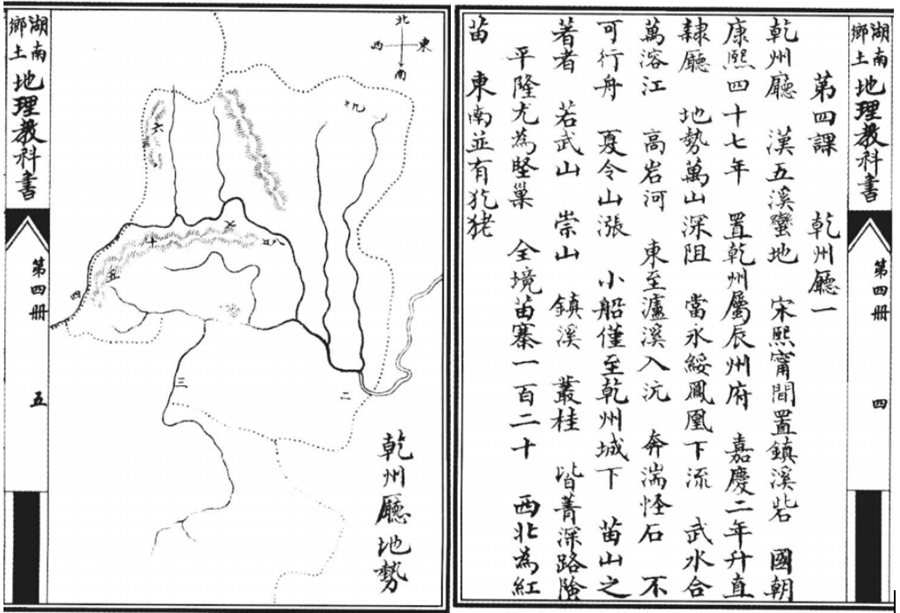 湖南鄉土
地理教科書
第四冊
四
第四課 乾州廳一
乾州廳 漢五溪蠻地 宋熙甯間置鎮溪砦 國朝
康熙四十七年 置乾州屬辰州府 嘉慶二年升直
隸廳 地勢萬山深阻 當永綏鳳凰下流 武水合
萬溶江 高岩河 東至瀘溪入沅 奔湍怪石 不
可行舟 夏令山漲 小船僅至乾州城下 苗山之
著者 若武山 崇山 鎮溪 叢桂 皆菁深路險
平隆尤為堅巢 全境苗寨一百二十 西北為紅
苗 東南並有犵狫
北
東
西
南
九
六
十
五
四
三
二
乾州廳地勢
湖南鄉土
地理教科書
第四冊
五